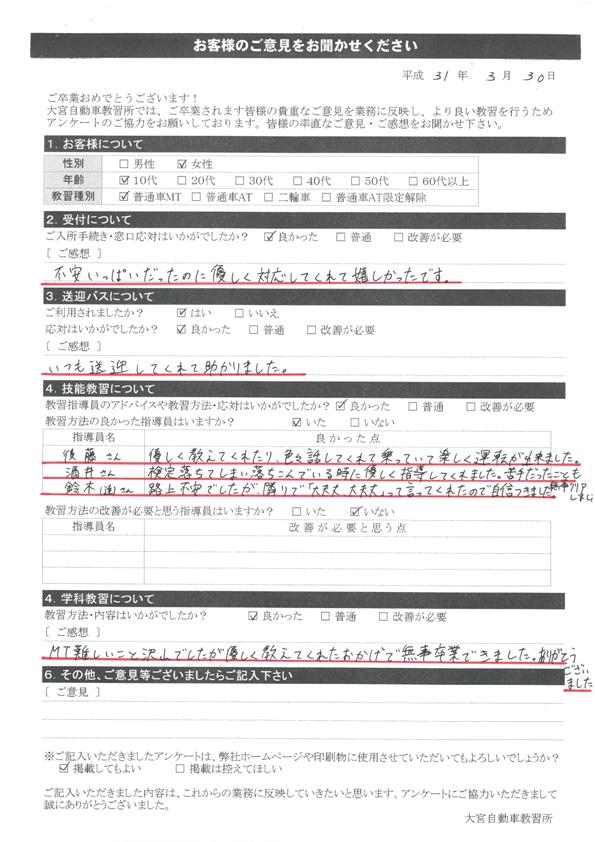 お客様のご意見をお聞かせください
平成 31 年 3 月 30 日
ご卒業おめでとうございます！
大宮自動車教習所では、ご卒業されます皆様の貴重なご意見を業務に反映し、より良い教習を行うため
アンケートのご協力をお願いしております。皆様の率直なご意見・ご感想をお聞かせ下さい。
1. お客様について
性別 □ 男性 ☑ 女性
年齢 ☑ 10代 □ 20代 □ 30代 □ 40代 □ 50代 □ 60代以上
教習種別 ☑ 普通車MT □ 普通車AT □ 二輪車 □ 普通車AT限定解除
2. 受付について
ご入所手続き・窓口応対はいかがでしたか？ ☑ 良かった □ 普通 □ 改善が必要
［ ご感想 ］
不安いっぱいだったのに優しく対応してくれて嬉しかったです。
3. 送迎バスについて
ご利用されましたか？ ☑ はい □ いいえ
応対はいかがでしたか？ ☑ 良かった □ 普通 □ 改善が必要
［ ご感想 ］
いつも送迎してくれて助かりました。
4. 技能教習について
教習指導員のアドバイスや教習方法・応対はいかがでしたか？ ☑ 良かった □ 普通 □ 改善が必要
教習方法の良かった指導員はいますか？ ☑ いた □ いない
指導員名 良かった点
後藤さん 優しく教えてくれたり、色々話してくれて乗っていて楽しく運転が出来ました。
酒井さん 検定落ちてしまい落ちこんでいる時に優しく指導してくれました。苦手だったことも
無事クリア
しました
鈴木(進)さん 路上不安でしたが、隣りで「大丈夫、大丈夫」って言ってくれたので自信つきました
教習方法の改善が必要と思う指導員はいますか？ □ いた ☑ いない
指導員名 改善が必要と思う点
4. 学科教習について
教習方法・内容はいかがでしたか？ ☑ 良かった □ 普通 □ 改善が必要
［ ご感想 ］
MT難しいこと沢山でしたが優しく教えてくれたおかげで無事卒業できました。ありがとう
ござい
ました
6. その他、ご意見等ございましたらご記入下さい
［ ご意見 ］
※ご記入いただきましたアンケートは、弊社ホームページや印刷物に使用させていただいてもよろしいでしょうか？
☑ 掲載してもよい □ 掲載は控えてほしい
ご記入いただきました内容は、これからの業務に反映していきたいと思います。アンケートにご協力いただきまして
誠にありがとうございました。
大宮自動車教習所